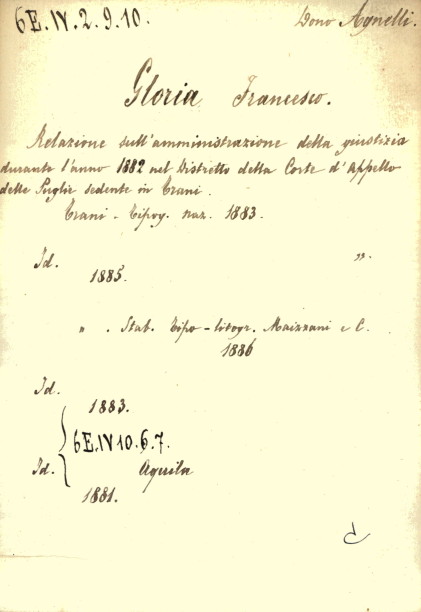 6E.IV.2.9.10. Dono Agnelli.
Gloria Francesco.
Relazione sull'amministrazione della giustizia
durante l'anno 1882 nel Distretto della Corte d'Appello
delle Puglie sedente in Trani.
Trani - Tipog. naz. 1883.
Id. "
1885.
" . Stab. Tipo-litogr. Maizzani e C.
1886
Id.
1883.
6E.IV 10.6.7.
Id. Aquila
1881.